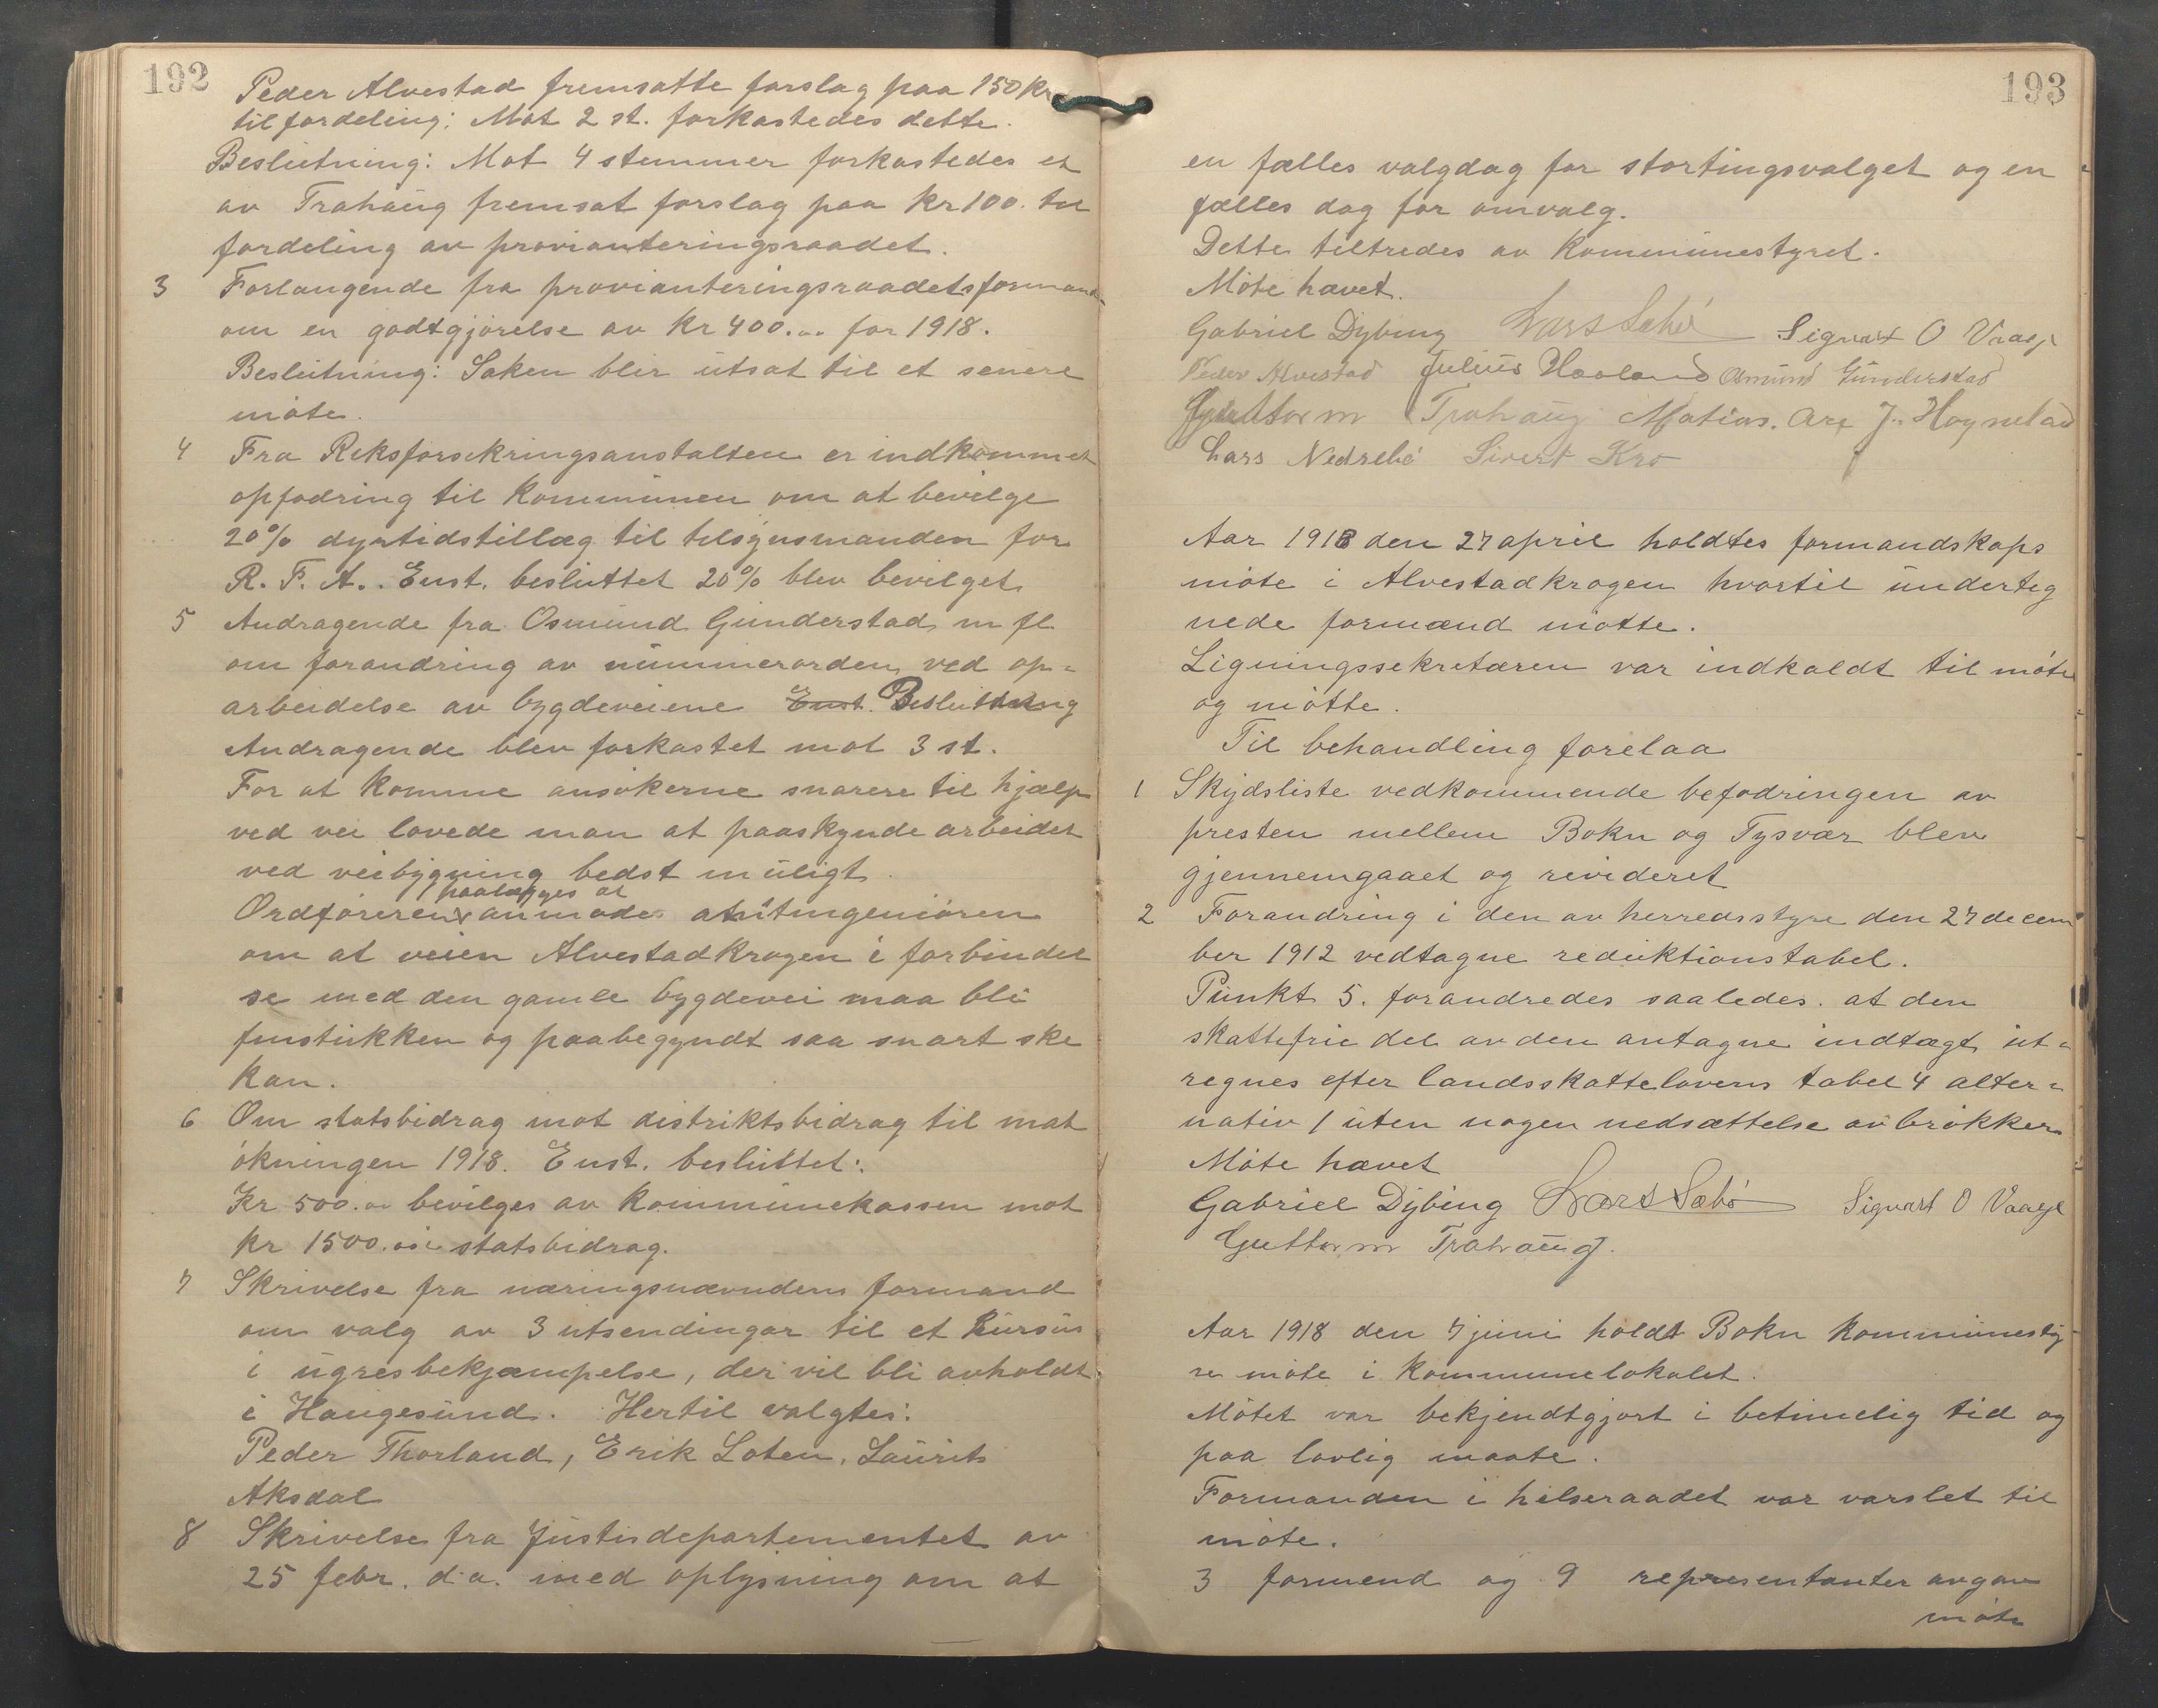 192
Peder Alvestad fremsatte forslag paa 150 kr
til fordeling: Mot 2 st. forkastedes dette.
Beslutning: Mot 4 stemmer forkastedes et
av Trahaug fremsat forslag paa kr 100. til
fordeling av provianteringsraadet.
3 Forlangende fra provianteringsraadets formand
om en godtgjørelse av kr 400.00 for 1918.
Beslutning: Saken blir utsat til et senere
møte.
4 Fra Riksforsikringsanstalten er indkommet
opfodring til kommunen om at bevilge
20% dyrtidstillæg til tilsynsmanden for
R. F. A.. Enst. besluttet 20% blev bevilget
5 Andragende fra Osmund Gunderstad m fl.
om forandring av nummerorden ved op-
arbeidelse av bygdeveiene Enst. Beslutning
Andragende blev forkastet mot 3 st.
For at komme ansøkerne snarere til hjælp
ved vei lovede man at paaskynde arbeidet
ved veibygning bedst muligt.
paalægges at
Ordføreren anmode amtingeniøren
om at veien Alvestadkrogen i forbindel
se med den gamle bygdevei maa bli
funstukken og paabegyndt saa snart ske
kan.
6 Om statsbidrag mot distriktsbidrag til mat
økningen 1918. Enst. besluttet:
Kr 500.00 bevilges av kommunekassen mot
kr 1500.00 statsbidrag.
7 Skrivelse fra næringsnævndens formand
om valg av 3 utsendingar til et kursus
i ugresbekjæmpelse, der vil bli avholdt
i Haugesund. Hertil valgtes:
Peder Thorland, Erik Loten, Laurits
Aksdal
8 Skrivelse fra Justisdepartementet av
25 febr. d.a. med oplysning om at
193
en fælles valgdag for stortingsvalget og en
fælles dag for omvalg.
Dette tiltredes av kommunestyret.
Møte hævet.
Gabriel Dybing Lars Sæbø Sigvart O Vaage
Peder Alvestad Julius Haaland Osmund Gunderstad
Guttorm Trahaug Matias. Are J. Høynelad
Lars Nedrebø Sivert Kro
Aar 1918 den 27 april holdtes formandskaps
møte i Alvestadkrogen hvortil underteg
nede formænd møtte.
Ligningssekretæren var indkaldt til møte
og møtte.
Til behandling forelaa
1 Skydsliste vedkommende befodringen av
presten mellem Bokn og Tysvær blev
gjennemgaaet og revideret
2 Forandring i den av herredsstyre den 27 decem
ber 1912 vedtagne reduktionstabel.
Punkt 5. forandredes saaledes. at den
skattefrie del av den antagne indtægt ut-
regnes efter landsskattelovens tabel 4 alter-
nativ 1 uten nogen nedsættelse av brøkker
Møte hævet
Gabriel Dybing Lars Sæbø Sigvart O Vaage
Guttorm Trahaug.
Aar 1918 den 7 juni holdt Bokn kommunesty
re møte i kommunelokalet.
Møtet var bekjendtgjort i betimelig tid og
paa lovlig maate.
Formanden i helseraadet var varslet til
møte.
3 formend og 9 representanter avgav
møte